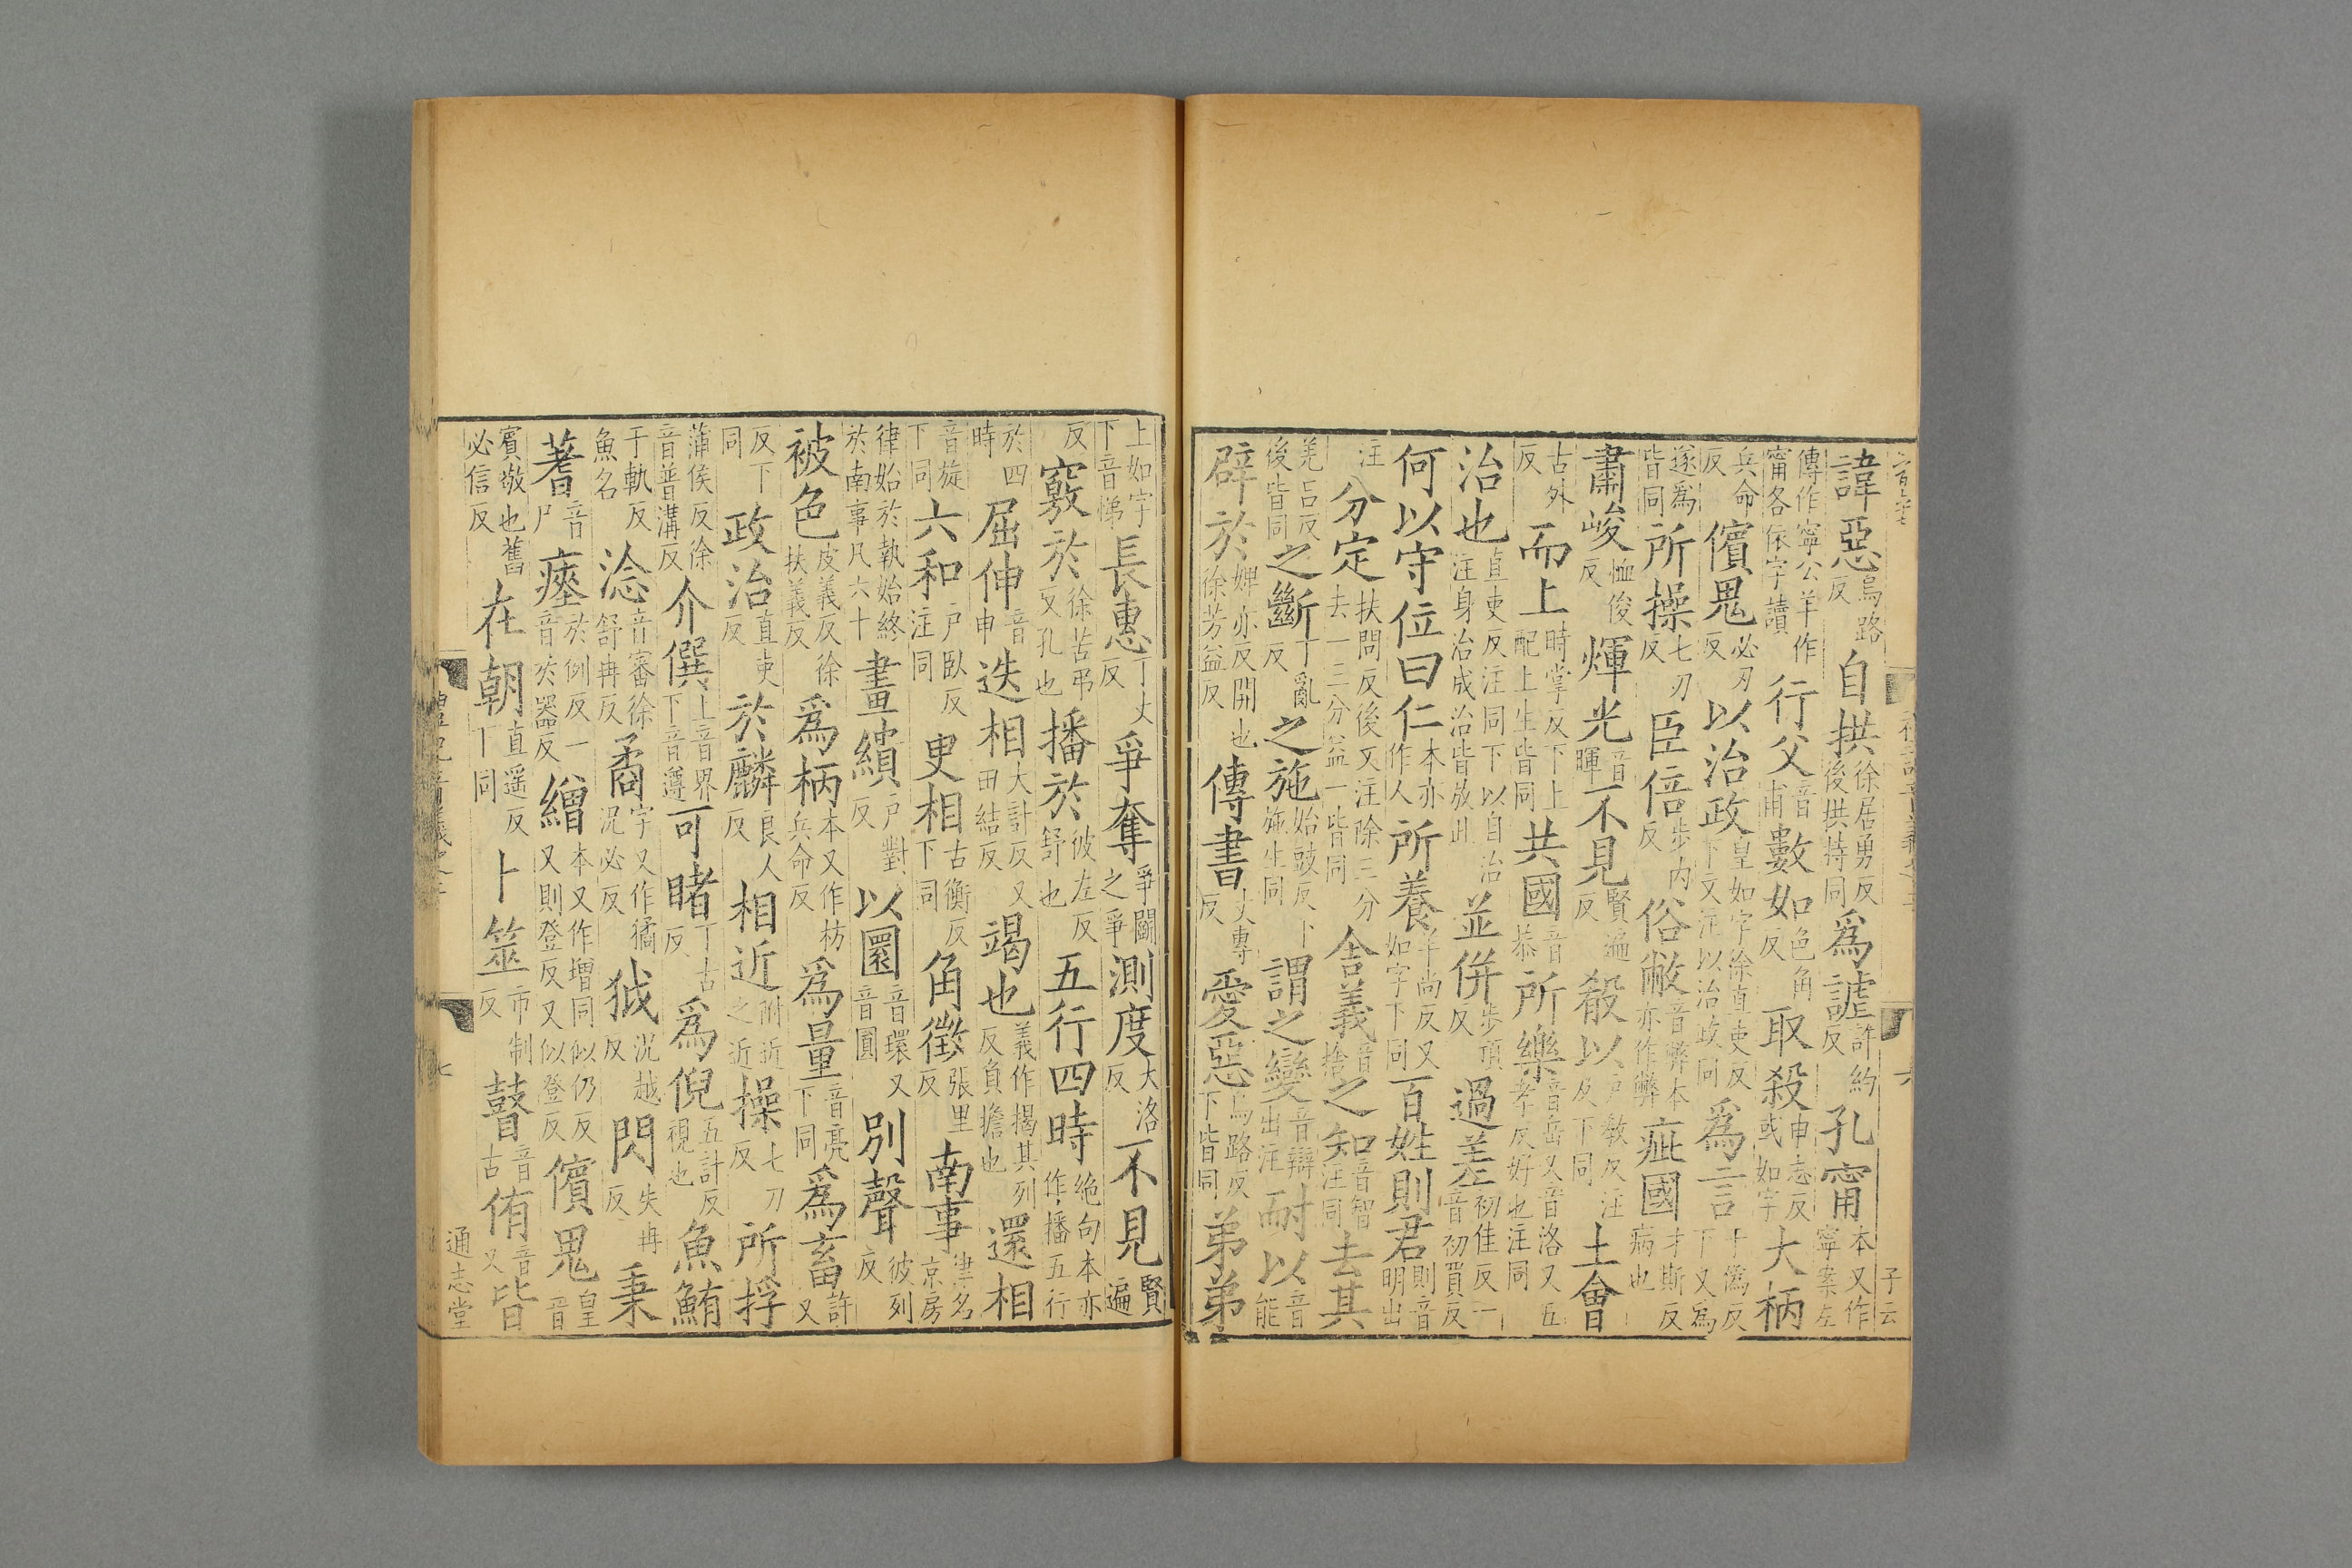 諱惡烏路反自拱徐居勇反後拱持同爲謔許約反孔甯本又作寧案左
傳作寧公羊作甯各依字讀行父音甫數如色角反取殺申志反或如字大柄
兵命反儐鬼必刃反以治政皇如字徐直吏反下文注以治政同爲言于僞反下又爲
遂爲皆同所操七刀反臣倍步内反俗敝音弊本亦作弊疵國才斯反病也
肅峻恤俊反煇光音暉不見賢遍反殽以户教反注及下同土會
古外反而上時掌反下上配上生皆同共國音恭所樂音岳又音洛又五孝反好也注同
治也直吏反注同下以自治注身治成治皆放此並併步頂反過差初佳反一音初買反
何以守位曰仁本亦作人所養羊尚反又如字下同百姓則君則音明出
注分定扶問反後又注除三分去一三分益一皆同舍義音捨之知音智注同去其
羌呂反後皆同之斷丁亂反之施始豉反下施生同謂之變音辯出注耐以音能
辟於婢亦反開也徐芳益反傳書丈專反愛惡烏路反下皆同弟弟
上如字下音悌長惠丁丈反爭奪爭鬭之爭測度大洛反不見賢遍
反竅於徐苦弔反又孔也播於彼左反舒也五行四時絶句本亦作播五行
於四時屈伸音申迭相大計反又田結反竭也義作揭其列反負擔也還相
音旋下同六和户臥反注同更相古衡反下同角徵張里反南事律名京房
律始於執始終於南事凡六十畫繢户對反以圜音環又音圓別聲彼列反
被色皮義反徐扶義反爲柄本又作枋兵命反爲量音亮下同爲畜許又
反下同政治直吏反於麟良人反相近附近之近操七刀反所捊
蒲侯反徐音普溝反介僎上音界下音遵可睹丁古反爲倪五計反視也魚鮪
于軌反魚名淰音審徐舒冉反矞字又作獝況必反狘況越反閃失冉反秉
蓍音尸瘞於例反一音於器反繒本又作增同似仍反又則登反又似登反儐鬼皇音
賓敬也舊必信反在朝直遥反下同卜筮市制反瞽音古侑音又皆
七
通志堂